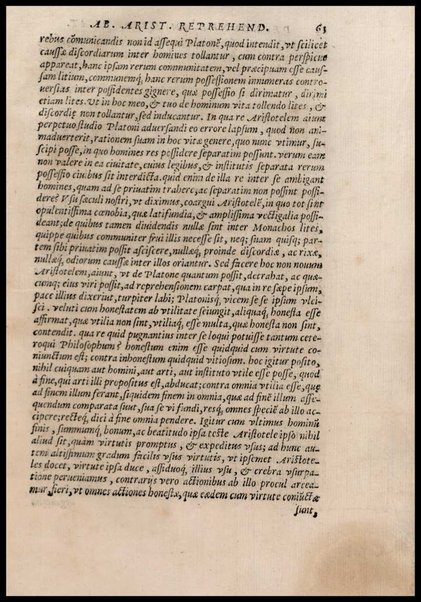 AB. ARIST. REPREHEND. 63
rebus cōmunicandis non id assequi Platonē, quod intendit, vt scilicet
caussæ discordiarum inter homines tollantur, cum contra perspicuè
appareat, hanc ipsam rerum communitatem, vel præcipuam esse caus-
sam litium, communemq́; hanc rerum possessionem innumeras contro-
uersias inter possidentes gignere, quæ possessio si dirimatur, dirimi
etiam lites. Ut in hoc meo, & tuo de hominum vita tollendo lites, &
discordiȩ non tollantur, sed inducantur. In qua re Aristotelem aiunt
perpetuo studio Platoni aduersandi eo errore lapsum, quod non ani-
maduerterit, rationem suam in hoc vitæ genere, quo nunc vtimur, su-
scipi posse, in quo homines res possidere separatim possunt. verum eam
non valere in ea ciuitate, cuius legibus, & institutis separata rerum
possessio ciuibus sit interdicta. quid enim de illa re inter se ambigant
homines, quam ad se priuatim trahere, ac separatim non possint possi-
dere? Vsu sæculi nostri, vt diximus, coargui Aristotelē, in quo tot sint
opulentissima cœnobia, quæ latifundia, & amplissima vectigalia possi-
deant; de quibus tamen diuidendis nullæ sint inter Monachos lites,
quippe quibus communiter frui illis necesse sit, neq; suam quisq; par-
tem sibi priuatim possit asciscere, nullæq, proinde discordiæ, ac rixæ,
nullæq, odiorum caussæ inter illos oriantur. Sed facere hoc non nouum
Aristotelem, aiunt, vt de Platone quantum possit, detrahat, ac quæ-
cunq; eius viri possit, ad reprehensionem carpat, qua in re sæpe ipsum,
pace illius dixerim, turpiter labi; Platonisq; vicem se se ipsum vlci-
sci. veluti cum honestatem ab vtilitate seiungit, aliquaq́, honesta esse
affirmat, quæ vtilia non sint, vtiliaq́, esse multa, quæ honesta non sint,
contendit. qua re quid pugnantius inter se loqui potuisse tantum cete-
roqui Philosophum? honestum enim esse quidquid cum virtute co-
niunctum est; contra inhonestum quidquid vitiosum. hoc igitur posito,
nihil cuiquam aut homini, aut arti, aut instituto vtile esse posse, quod
à fine, qui arti illi propositus est, abducat; contra omnia vtilia esse, quæ
ad finem illum ferant, siquidem finem in omnia, quæ ad finē illum asse-
quendum comparata siut, sua se vi fundi, resq́, omnes speciē ab illo ac-
cipere; recteq́, dici à fine omnia pendere. Igitur cum vltimus hominū
finis, summumq́, bonum, ac beatitudo ipsa teste Aristotele ipso nihil
aliud sit, quàm virtutis promptus, & expeditus vsus; ad hunc au-
tem altissimum gradum facilis vsus virtutis, vt ipsemet Aristote-
les docet, virtute ipsa duce, assiduoq́, illius vsu, & crebra vsurpa-
tione perueniamus, contrarijs vero actionibus ab illo procul arcea-
mur, fieri, vt omnes actiones honestæ, quæ eædem cum virtute coniūctæ
sunt,